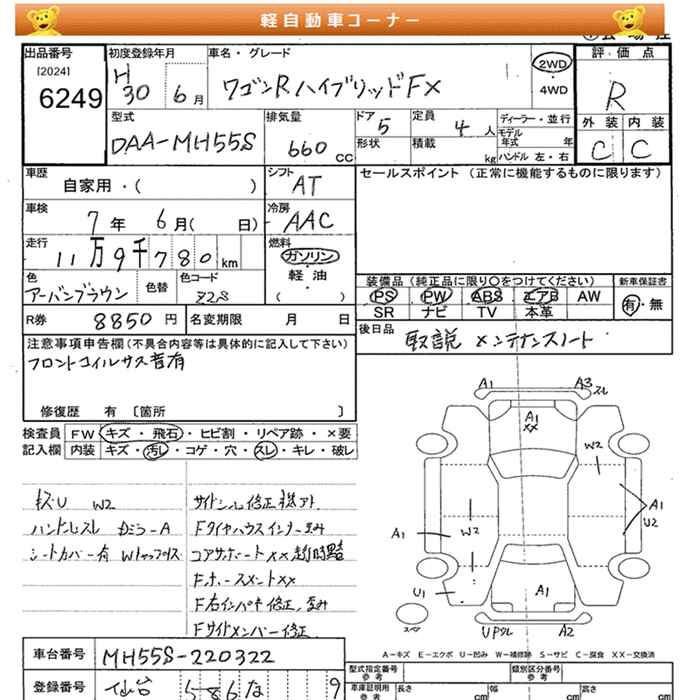 軽自動車コーナー
出品番号
[2024]
6249
初度登録年月
H30 6月
車名・グレード
ワゴンRハイブリッドFX
2WD
4WD
評価点
R
外装 内装
C C
型式
DAA-MH55S
排気量
660 cc
ドア 5
形状
定員 4 人
積載 kg
ディーラー・並行
モデル年式 年
ハンドル 左・右
車歴
自家用・( )
シフト
AT
セールスポイント (正常に機能するものに限ります)
車検
7年 6月( 日)
冷房
AAC
走行
11万9千780km
燃料
ガソリン
軽・油
( )
色
アーバンブラウン
色替
色コード
Z2S
装備品(純正品に限り○をつけてください)
新車保証書
PS PW ABS エアB AW
SR ナビ TV 本革
有・無
R券 8850円
名変期限 月 日
後日品
取説 メンテナンスノート
注意事項申告欄(不具合内容等は具体的に記入して下さい)
フロントコイルサス音有
修復歴 有 〔箇所 〕
検査員
記入欄
FW キズ・飛石・ヒビ割・リペア跡・×要
内装 キズ・汚レ・コゲ・穴・スレ・キレ・破レ
キズU W2
ハンドルスレ Dミラ-A
シートカバー有
サイドシル修正
Fタイヤハウスインナー歪み
コアサポートXX
F右インパネ修正、歪み
Fサイドメンバー修正
A1
A3 スレ
A1
XX
W2
A1
U2
A1
W2
U1
A1
A2
スペア
A-キズ E-エクボ U-凹み W-補修跡 S-サビ C-腐食 XX-交換済
車台番号
MH55S-220322
登録番号
仙台 586 な 9
型式指定番号
参考
類別区分番号
参考
車庫証明用
参考
長さ cm
幅 cm
高さ cm